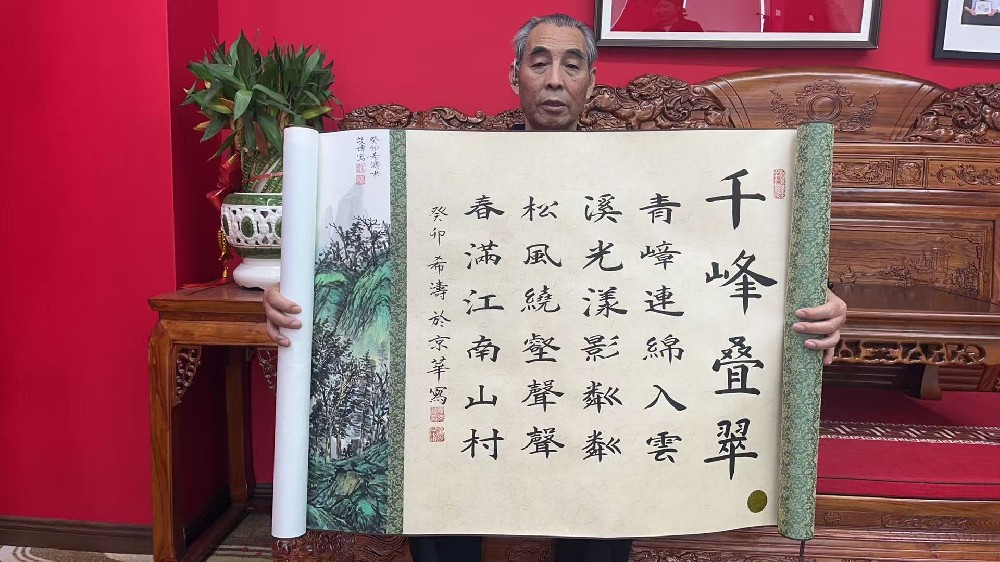 千峰叠翠
青嶂連綿入雲
溪光漾影粼粼
松風繞壑聲聲
春滿江南山村
癸卯希濤於京華寫
癸卯希濤書